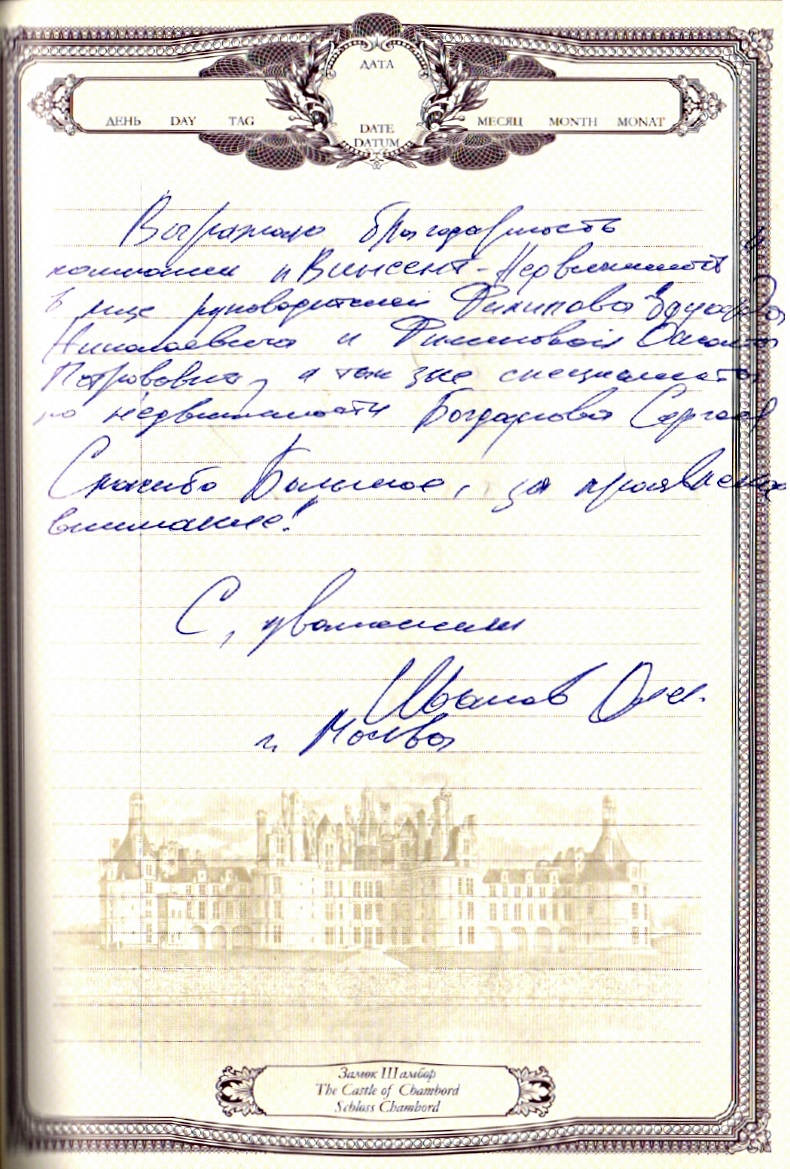 ДАТА
ДЕНЬ DAY TAG
DATE
DATUM
МЕСЯЦ MONTH MONAT
Выражаю благодарность
компании "Винсент-Недвижимость"
в лице руководителей Филипова Эдуарда
Николаевича и Филиповой
а так же специалиста
по недвижимости Богданова Сергея
Спасибо Большое, за проявленное
внимание!
С, уважением
Иванов Олег
г. Москва
Замок Шамбор
The Castle of Chambord
Schloss Chambord